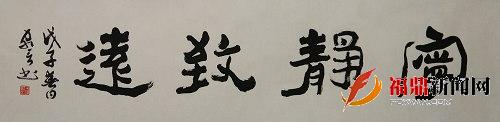 寧靜致遠
戊子
福鼎新闻网